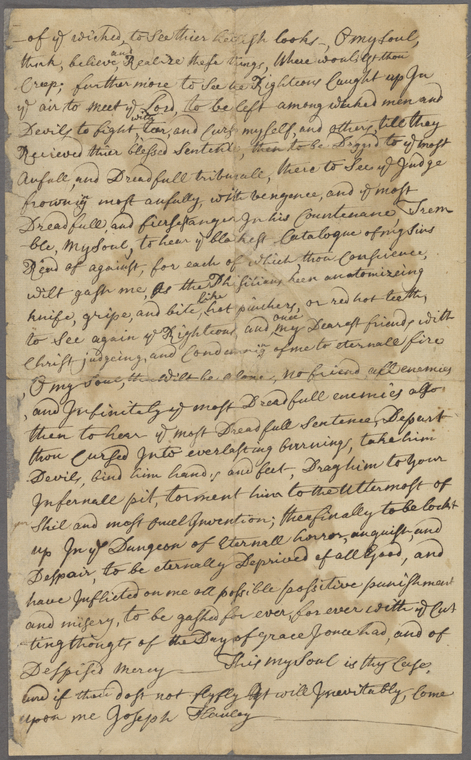 of ye wicked, to See thier looks, O my Soul,
think, believe, and Realize these things, Where wouldst thou
Creep; further more to See ye Righteous Caught up In
ye air to meet ye Lord, to be left among wicked men and
Devils to fight with, tear, and Curs myself, and others, till they
Recieved thier blessed Sentence, then to be Dragd to ye most
Awfull, and Dreadfull tribunall, there to See ye Judge
frowning most awfully, with vengence, and ye most
Dreadfull, and fierse anger In his Countenance, Trem
ble, My Soul, to hear ye blackest Catalogue of my Sins
Read of against, for each of which thou Conscience,
wilt gash me, As the Phisitians keen anatomizeing
knife, gripe, and bite, like hot pinchers, or red hot teeth,
to See again ye Righteous, and once my Dearest friends with
Christ judgeing, and Condemning of me to eternall fire
O my Soul, thou wilt be alone, no friend all enemies
, and Infinitely ye most Dreadfull enemies also
then to hear ye most Dreadfull Sentence, Depart
thou Cursed Into everlasting burning, take him
Devils, bind him hands and feet, Drag him to your
Infernall pit, torment him to the Uttermost of
Skil and most Cruel Invention; then finally to be lockt
up In ye Dungeon of Eternall horror, anguish and
Despair, to be eternelly Deprived of all Good, and
have Inflicted on me all possible possitive punishment
and misery, to be gashed for ever, for ever with ye Cut
ting thougts of the Day of Grace I once had, and of
Despised Mercy — This my Soul is thy Case,
and if thou dost not fly, fly It will Inevitably, Come
upon me Joseph